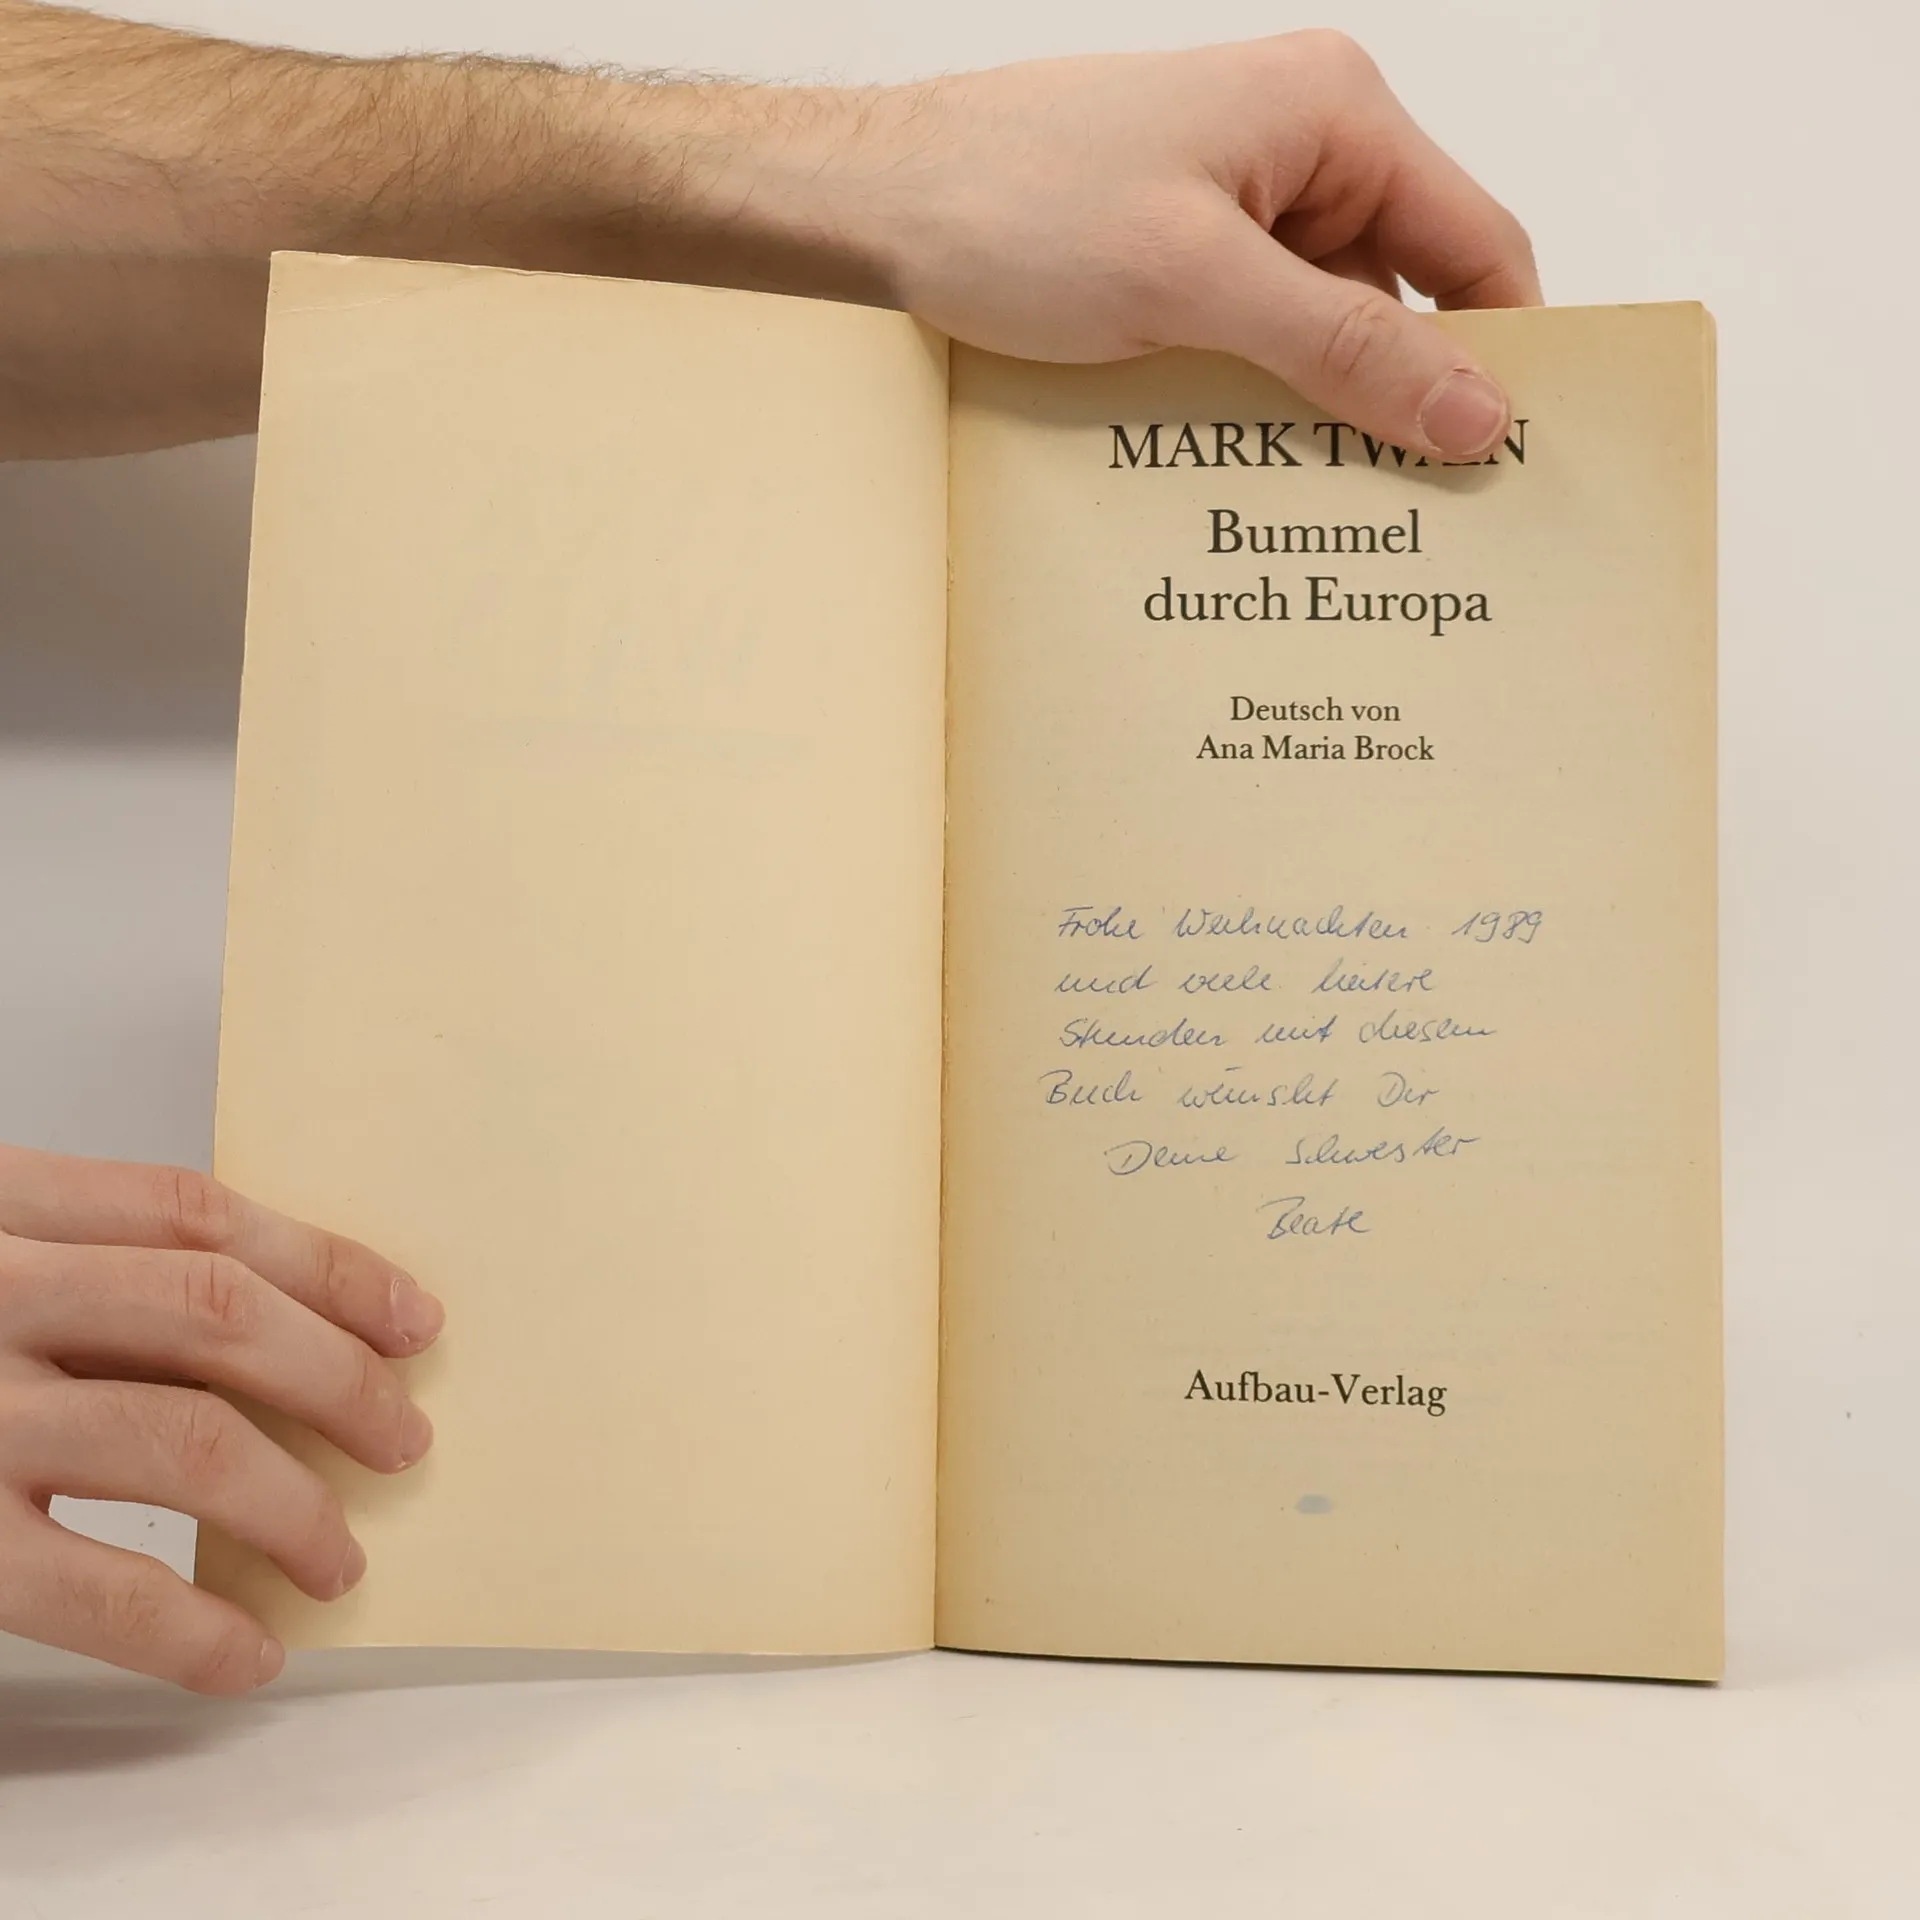 MARK TWAIN
Bummel
durch Europa
Deutsch von
Ana Maria Brock
Frohe Weihnachten 1989
und viele heitere
Stunden mit diesem
Buch wünscht Dir
Deine Schwester
Beate
Aufbau-Verlag